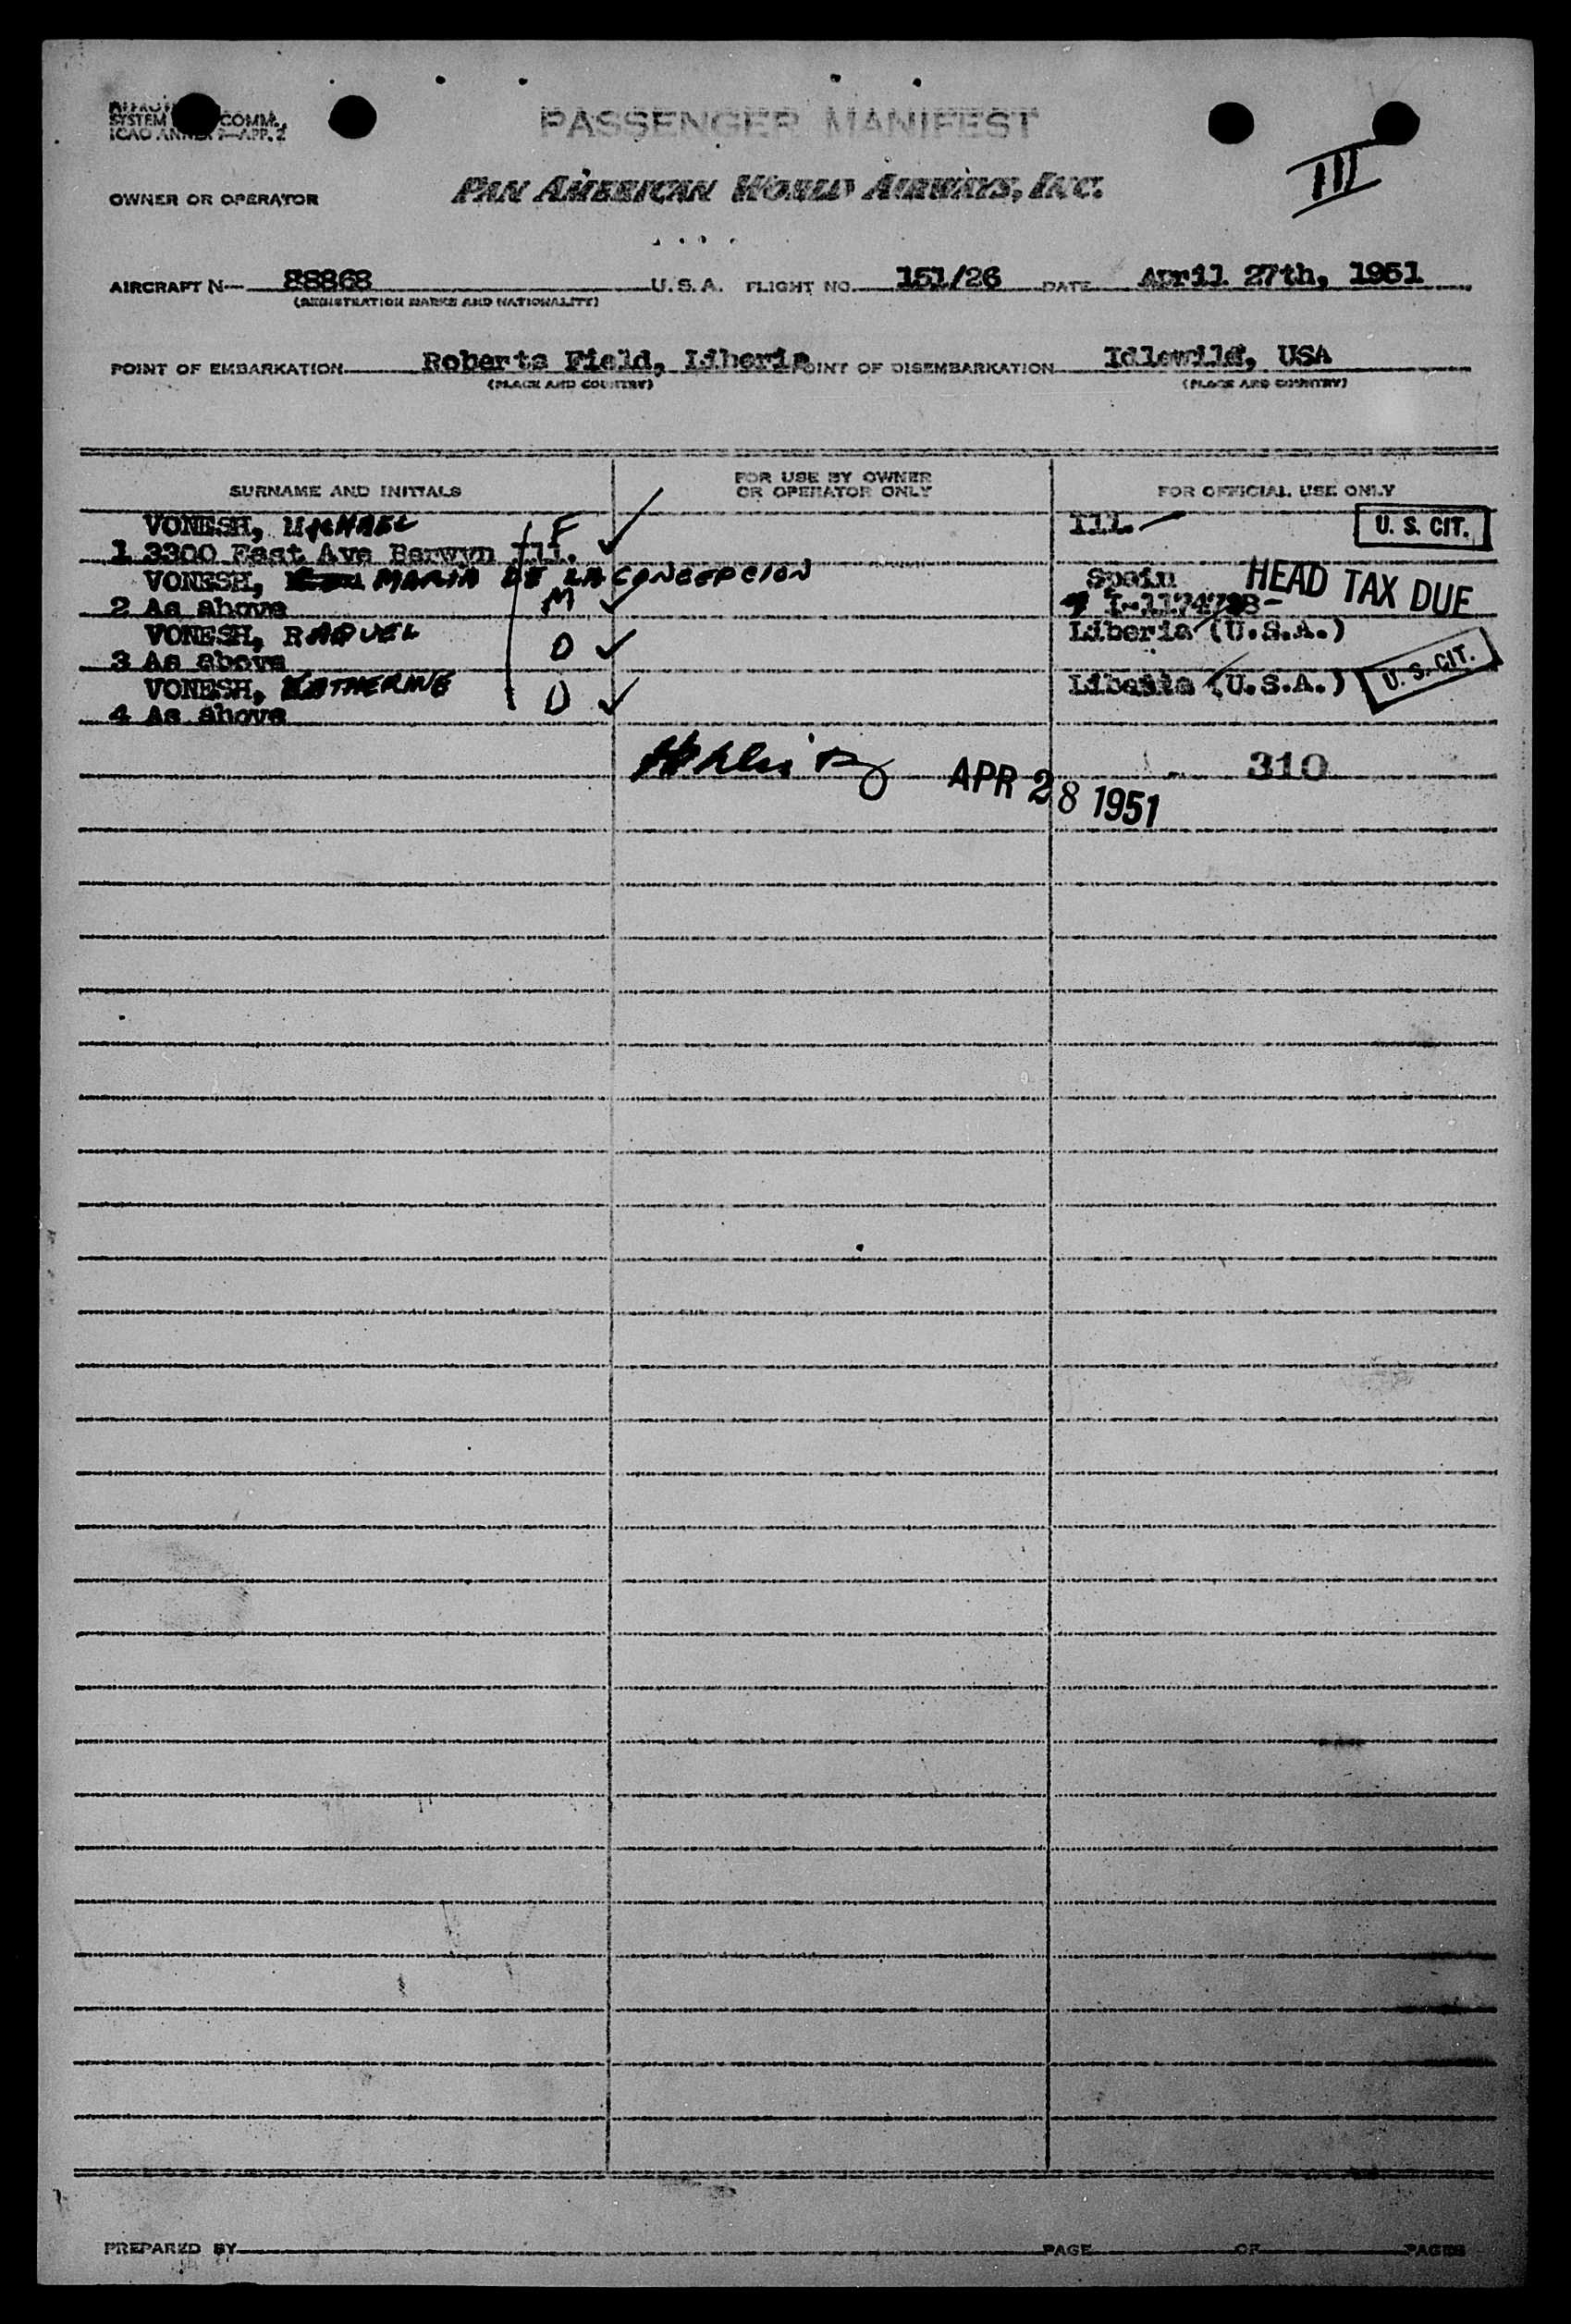 SYSTEM COMM.
ICAO ANNEX 9—APP. 2
PASSENGER MANIFEST
III
OWNER OR OPERATOR PAN AMERICAN WORLD AIRWAYS, INC.
AIRCRAFT N— 88868 U.S.A. FLIGHT NO. 151/26 DATE April 27th, 1951
(REGISTRATION MARKS AND NATIONALITY)
POINT OF EMBARKATION Roberts Field, Liberia POINT OF DISEMBARKATION Idlewild, USA
(PLACE AND COUNTRY) (PLACE AND COUNTRY)
SURNAME AND INITIALS FOR USE BY OWNER OR OPERATOR ONLY FOR OFFICIAL USE ONLY
VONESH, MICHAEL F Ill. U. S. CIT.
1 3300 East Ave Berwyn Ill.
VONESH, MARIA DE LA CONCEPCION Spain HEAD TAX DUE
2 As above M
VONESH, RAQUEL Liberia (U.S.A.)
3 As above D
VONESH, KATHERINE Liberia (U.S.A.) U. S. CIT.
4 As above D
310
APR 28 1951
PREPARED BY PAGE OF PAGES